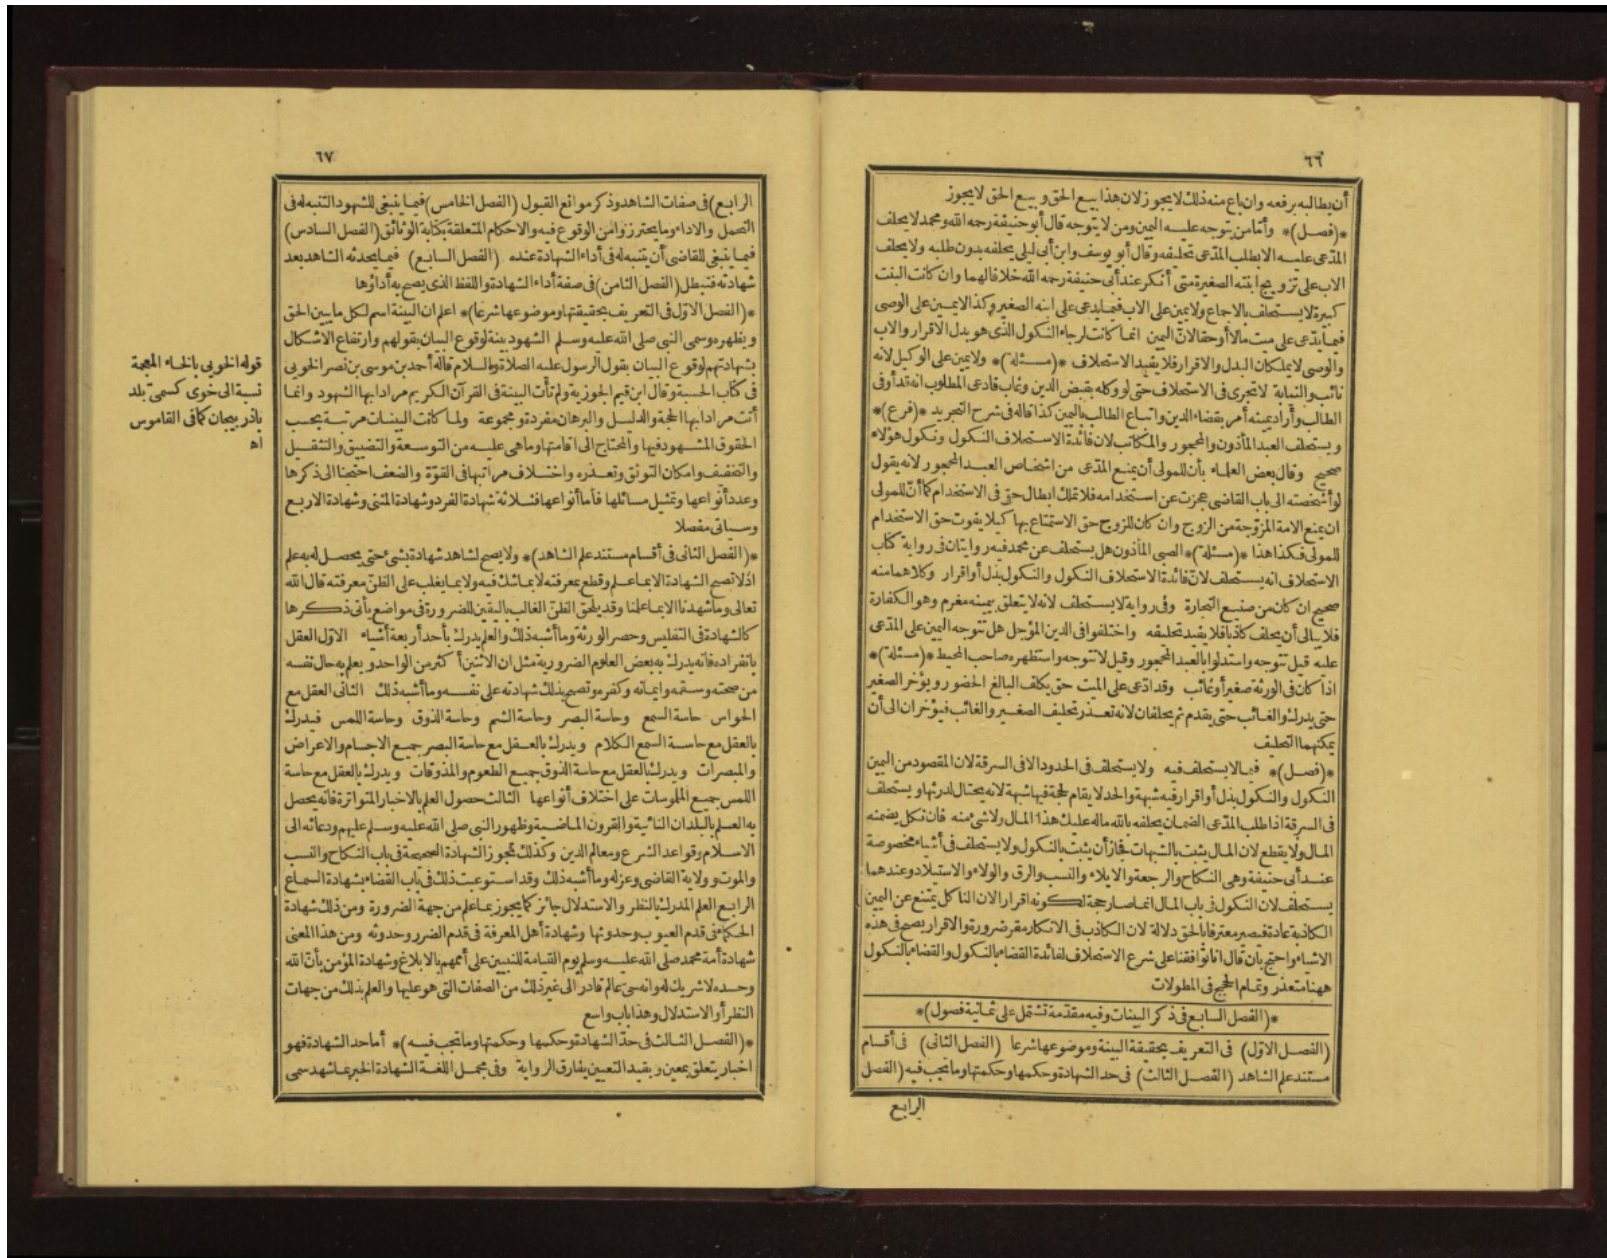 ٦٦
أن يطالبه برفعه وان باع منه ذلك لا يجوز لان هذا بيع الحق وبيع الحق لا يجوز
*(فصل)* وأما من يتوجه عليه اليمين ومن لا يتوجه قال أبو حنيفة رحمه الله ومحمد لا يحلف
المدّعى عليه الا بطلب المدّعى تحليفه وقال أبو يوسف وابن أبى ليلى يحلفه بدون طلبه ولا يحلف
الاب على تزويج ابنته الصغيرة متى أنكر عند أبى حنيفة رحمه الله خلافا لهما وان كانت البنت
كبيرة لا يستحلف بالاجماع ولا يمين على الاب فيما يدعى على ابنه الصغير وكذا لا يمين على الوصى
فيما يدّعى على ميت مالا أو حقا لان اليمين انما كانت لرجاء النكول الذى هو بدل الاقرار والاب
والوصى لا يملكان البدل والاقرار فلا يفيد الاستحلاف *(مسئلة)* ولا يمين على الوكيل لانه
نائب والنيابة لا تجرى فى الاستحلاف حتى لو وكله بقبض الدين وغاب فادعى المطلوب انه قد أوفى
الطالب وأراد يمينه أمر بقضاء الدين واتباع الطالب باليمين كذا قاله فى شرح التجريد *(فرع)*
ويستحلف العبد المأذون والمحجور والمكاتب لان فائدة الاستحلاف النكول ونكول هؤلاء
صحيح وقال بعض العلماء بأن للمولى أن يمنع المدّعى من اشخاص العبد المحجور لانه يقول
لو أشخصته الى باب القاضى عجزت عن استخدامه فلا تملك ابطال حقى فى الاستخدام كما أنّ للمولى
ان يمنع الامة المزوّجة من الزوج وان كان للزوج حق الاستمتاع بها كيلا يفوت حق الاستخدام
للمولى فكذا هذا *(مسئلة)* الصبى المأذون هل يستحلف عن محمد فيه روايتان فى رواية كتاب
الاستحلاف انه يستحلف لانّ فائدة الاستحلاف النكول والنكول بذل أو اقرار وكلاهما منه
صحيح ان كان من صنيع التجارة وفى رواية لا يستحلف لانه لا يتعلق بيمينه مغرم وهو الكفارة
فلا يبالى أن يحلف كاذبا فلا يفيد تحليفه واختلفوا فى الدين المؤجل هل تتوجه اليمين على المدّعى
عليه قيل تتوجه واستدلوا بالعبد المحجور وقيل لا تتوجه واستظهره صاحب المحيط *(مسئلة)*
اذا كان فى الورثة صغير أو غائب وقد ادّعى على الميت حق يكلف البالغ الحضور ويؤخر الصغير
حتى يدرك والغائب حتى يقدم ثم يحلفان لانه تعذر تحليف الصغير والغائب فيؤخران الى أن
يمكنهما التحليف
*(فصل)* فيما لا يستحلف فيه ولا يستحلف فى الحدود الا فى السرقة لان المقصود من اليمين
النكول والنكول بذل أو اقرار فيه شبهة والحد لا يقام لحجة فيها شبهة لانه يحتال لدرئها ويستحلف
فى السرقة اذا طلب المدّعى الضمان يحلفه بالله ماله عليك هذا المال ولا شئ منه فان نكل يضمنه
المال ولا يقطع لان المال يثبت بالشبهات فجاز أن يثبت بالنكول ولا يستحلف فى أشياء مخصوصة
عند أبى حنيفة وهى النكاح والرجعة والايلاء والنسب والرق والولاء والاستيلاد وعندهما
يستحلف لان النكول فى باب المال انما صار حجة لكونه اقرارا لان الناكل يمتنع عن اليمين
الكاذبة عادة فيصير معترفا بالحق دلالة لان الكاذب فى الانكار مقر ضرورة والاقرار يصح فى هذه
الاشياء واحتج بأن قال انا توافقنا على شرع الاستحلاف لفائدة القضاء بالنكول والقضاء بالنكول
ههنا متعذر وتمام الحجج فى المطولات
*(الفصل السابع فى ذكر البينات وفيه مقدّمة تشتمل على ثمانية فصول)*
(الفصل الاوّل) فى التعريف بحقيقة البينة وموضوعها شرعا (الفصل الثانى) فى أقسام
مستند علم الشاهد (الفصل الثالث) فى حد الشهادة وحكمها وحكمتها وما تجب فيه (الفصل
الرابع
٦٧
الرابع) فى صفات الشاهد وذكر موانع القبول (الفصل الخامس) فيما ينبغى للشهود التنبه له فى
التحمل والاداء وما يحترز وامن الوقوع فيه والاحكام المتعلقة بكتابة الوثائق (الفصل السادس)
فيما ينبغى للقاضى أن يتنبه له فى أداء الشهادة عنده (الفصل السابع) فيما يحدثه الشاهد بعد
شهادته فتبطل (الفصل الثامن) فى صفة أداء الشهادة واللفظ الذى يصح به أداؤها
*(الفصل الاوّل فى التعريف بحقيقتها وموضوعها شرعا)* اعلم ان البينة اسم لكل ما يبين الحق
ويظهره وسمى النبى صلى الله عليه وسلم الشهود بينة لوقوع البيان بقولهم وارتفاع الاشكال
بشهادتهم لوقوع البيان بقول الرسول عليه الصلاة والسلام قاله أحمد بن موسى بن نصر الخوبى
فى كتاب الحسبة وقال ابن قيم الجوزية ولم تأت البينة فى القرآن الكريم مرادا بها الشهود وانما
أتت مرادا بها الحجة والدليل والبرهان مفردة ومجموعة ولما كانت البينات مرتبة بحسب
الحقوق المشهود فيها والمحتاج الى اقامتها وما هى عليه من التوسعة والتضييق والتثقيل
والتخفيف وامكان التوثق وتعذره واختلاف مراتبها فى القوّة والضعف احتجنا الى ذكرها
وعدد أنواعها وتمثيل مسائلها فأما أنواعها فثلاثة شهادة الفرد وشهادة المثنى وشهادة الاربع
وسيأتى مفصلا
*(الفصل الثانى فى أقسام مستند علم الشاهد)* ولا يصح لشاهد شهادة بشئ حتى يحصل له به علم
اذ لا تصح الشهادة الا بما علم وقطع بمعرفته لا بما شك فيه ولا بما يغلب على الظنّ معرفته قال الله
تعالى وما شهدنا الا بما علمنا وقد يلحق الظنّ الغالب باليقين للضرورة فى مواضع يأتى ذكرها
كالشهادة فى التفليس وحصر الورثة وما أشبه ذلك والعلم يدرك بأحد أربعة أشياء الاوّل العقل
بانفراده فانه يدرك به بعض العلوم الضرورية مثل ان الاثنين أكثر من الواحد ويعلم به حال نفسه
من صحته وسقمه وايمانه وكفره وتصح بذلك شهادته على نفسه وما أشبه ذلك الثانى العقل مع
الحواس حاسة السمع وحاسة البصر وحاسة الشم وحاسة الذوق وحاسة اللمس فيدرك
بالعقل مع حاسة السمع الكلام ويدرك بالعقل مع حاسة البصر جميع الاجسام والاعراض
والمبصرات ويدرك بالعقل مع حاسة الذوق جميع الطعوم والمذوقات ويدرك بالعقل مع حاسة
اللمس جميع الملموسات على اختلاف أنواعها الثالث حصول العلم بالاخبار المتواترة فانه يحصل
به العلم بالبلدان النائية والقرون الماضية وظهور النبى صلى الله عليه وسلم عليهم ودعائه الى
الاسلام وقواعد الشرع ومعالم الدين وكذلك تجوز الشهادة الصحيحة فى باب النكاح والنسب
والموت وولاية القاضى وعزله وما أشبه ذلك وقد استوعبت ذلك فى باب القضاء بشهادة السماع
الرابع العلم المدرك بالنظر والاستدلال جائز كما يجوز بما علم من جهة الضرورة ومن ذلك شهادة
الحكماء فى قدم العيوب وحدوثها وشهادة أهل المعرفة فى قدم الضرر وحدوثه ومن هذا المعنى
شهادة أمة محمد صلى الله عليه وسلم يوم القيامة للنبيين على أممهم بالابلاغ وشهادة المؤمن بأنّ الله
وحده لا شريك له وانه حىّ عالم قادر الى غير ذلك من الصفات التى هو عليها والعلم بذلك من جهات
النظر أو الاستدلال وهذا باب واسع
*(الفصل الثالث فى حدّ الشهادة وحكمها وحكمتها وما تجب فيه)* أما حد الشهادة فهو
اخبار يتعلق بمعين وبقيد التعيين يفارق الرواية وفى مجمل اللغة الشهادة الخبر بما شهد سمى
قوله الخوبى بالخاء المعجمة
نسبة الى خوى كسمىّ بلد
باذربيجان كما فى القاموس
اه